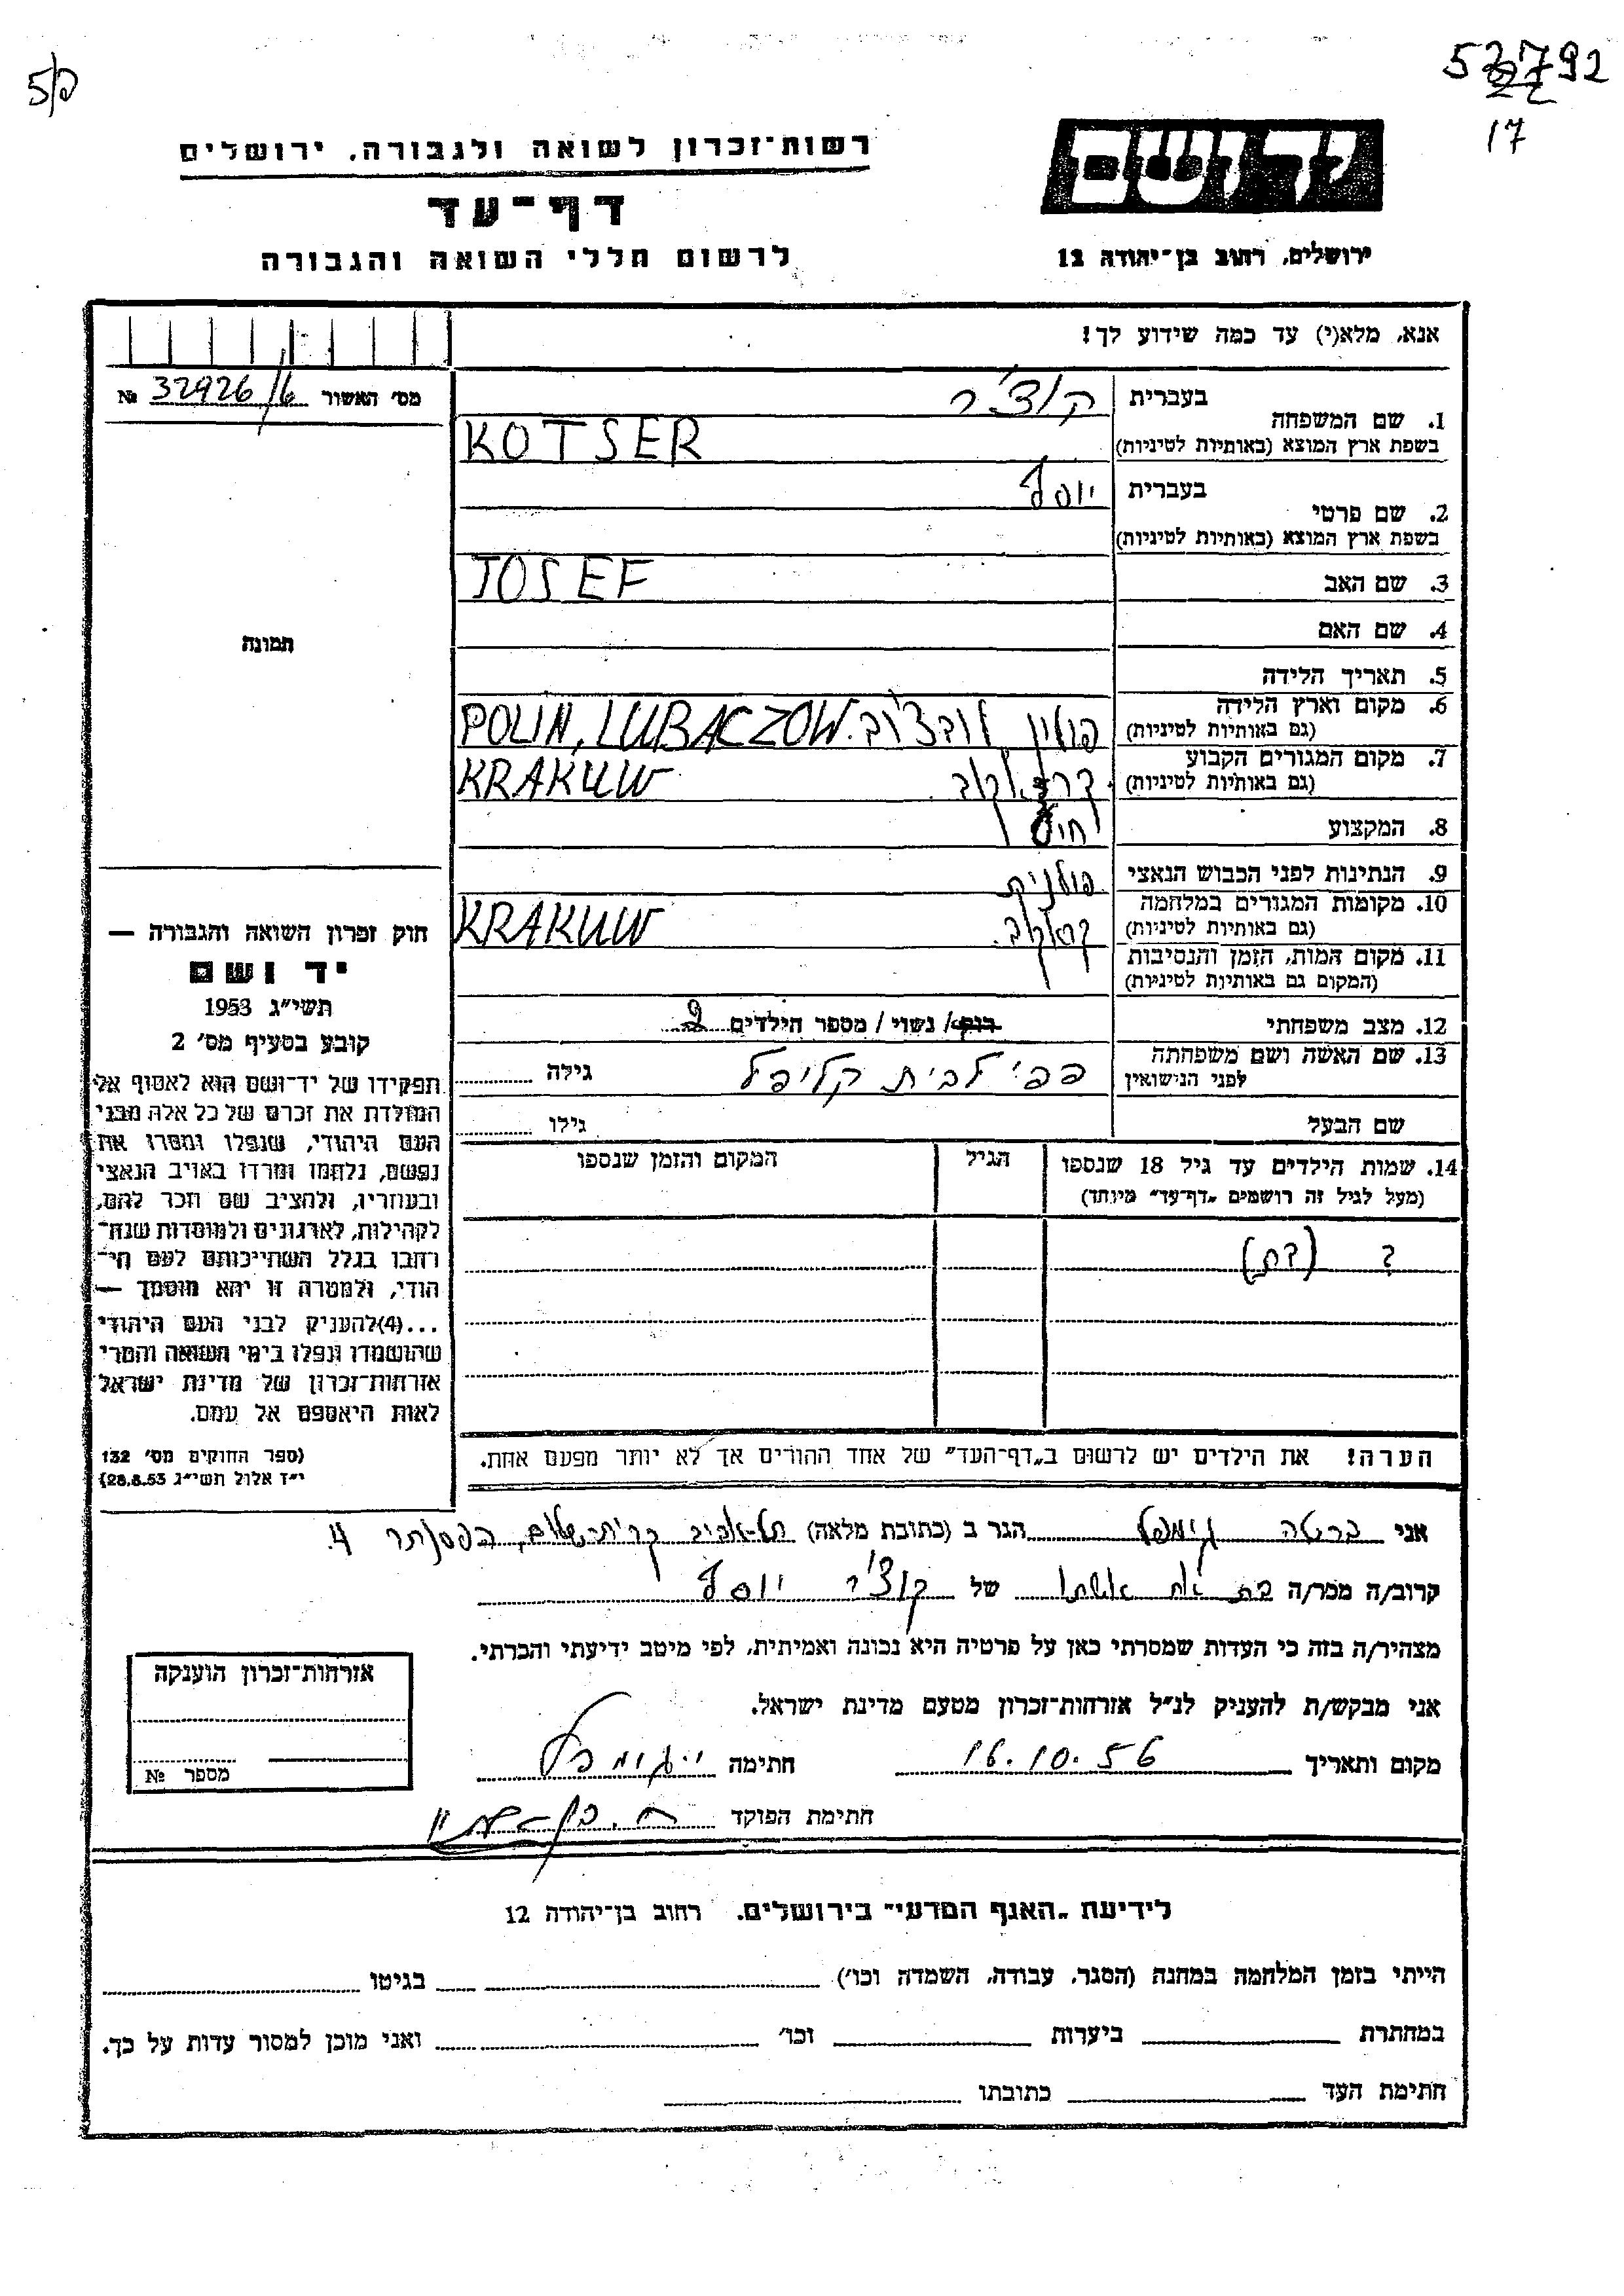 5792
17
רשות־זכרון לשואה ולגבורה, ירושלים
דף־עד
לרשום חללי השואה והגבורה
יד ושם
ירושלים, רחוב בן־יהודה 12
אנא, מלא(י) עד כמה שידוע לך!
מס׳ האשור 32926/6 №
תמונה
חוק זכרון השואה והגבורה —
יד ושם
תשי״ג 1953
קובע בסעיף מס׳ 2
תפקידו של יד־ושם הוא לאסוף אל
המולדת את זכרם של כל אלה מבני
העם היהודי, שנפלו ומסרו את
נפשם, נלחמו ומרדו באויב הנאצי
ובעוזריו, ולהציב שם וזכר להם,
לקהילות, לארגונים ולמוסדות שנח־
רבו בגלל השתייכותם לעם הי־
הודי, ולמטרה זו יהא מוסמך —
...(4)להעניק לבני העם היהודי
שהושמדו ונפלו בימי השואה והמרי
אזרחות־זכרון של מדינת ישראל
לאות היאספם אל עמם.
(ספר החוקים מס׳ 132
י״ז אלול תשי״ג 28.8.53)
1. שם המשפחה
בעברית קוצ׳ר
בשפת ארץ המוצא (באותיות לטיניות) KOTSER
2. שם פרטי
בעברית יוסף
בשפת ארץ המוצא (באותיות לטיניות)
3. שם האב JOSEF
4. שם האם
5. תאריך הלידה
6. מקום וארץ הלידה
(גם באותיות לטיניות) פולין, לובצ׳וב. POLIN, LUBACZOW
7. מקום המגורים הקבוע
(גם באותיות לטיניות) KRAKUW
8. המקצוע חיט
9. הנתינות לפני הכבוש הנאצי פולנית
10. מקומות המגורים במלחמה
(גם באותיות לטיניות) קרקוב. KRAKUW
11. מקום המות, הזמן והנסיבות
(המקום גם באותיות לטיניות)
12. מצב משפחתי רוק/ נשוי / מספר הילדים 2
13. שם האשה ושם משפחתה
לפני הנישואין פפי לבית קליפל גילה
שם הבעל גילו
14. שמות הילדים עד גיל 18 שנספו הגיל המקום והזמן שנספו
(מעל לגיל זה רושמים „דף־עד״ מיוחד)
? (בת)
הערה! את הילדים יש לרשום ב„דף־העד״ של אחד ההורים אך לא יותר מפעם אחת.
אני ברטה גימפל הגר ב (כתובת מלאה) תל-אביב קרית-שלום, 4
קרוב/ה מכר/ה בת אח אשתו של קוצ׳ר יוסף
מצהיר/ה בזה כי העדות שמסרתי כאן על פרטיה היא נכונה ואמיתית, לפי מיטב ידיעתי והכרתי.
אני מבקש/ת להעניק לנ״ל אזרחות־זכרון מטעם מדינת ישראל.
מקום ותאריך 16.10.56 חתימה גימפל
חתימת הפוקד
אזרחות־זכרון הוענקה
מספר №
לידיעת „האגף המדעי״ בירושלים. רחוב בן־יהודה 12
הייתי בזמן המלחמה במחנה (הסגר, עבודה, השמדה וכו׳) בגיטו
במחתרת ביערות וכו׳ ואני מוכן למסור עדות על כך.
חתימת העד כתובתו